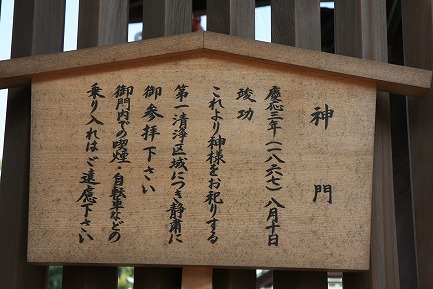 神門
慶応三年(一八六七)八月十日
竣功
これより神様をお祀りする
第一清浄区域につき静粛に
御参拝下さい
御門内での喫煙 自転車などの
乗り入れはご遠慮下さい